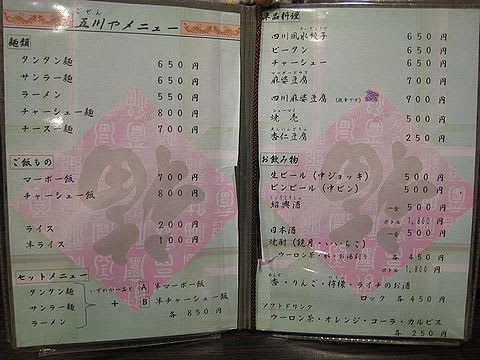 ごぜん
五川やメニュー
麺類
タンタン麺 650円
サンラー麺 650円
ラーメン 550円
チャーシュー麺 800円
チースー麺 700円
ご飯もの
マーボー飯 700円
チャーシュー飯 800円
ライス 200円
半ライス 100円
セットメニュー
タンタン麺
サンラー麺
ラーメン
いずれか一品と
+
A 半マーボー飯
B 半チャーシュー飯
各 850円
単品料理
四川風水餃子 650円
ピータン 500円
チャーシュー 650円
マーボードウフ
麻婆豆腐 700円
四川麻婆豆腐 900円
シューマイ
焼売 500円
あんにんどうふ
杏仁豆腐 250円
お飲み物
生ビール(中ジョッキ) 500円
ビンビール(中ビン) 500円
しょうこうしゅ
紹興酒 一合 500円
ボトル 1,800円
日本酒 一合 500円
焼酎(鏡月・いいちこ)
ウーロン茶・水・お湯割り 各 450円
ボトル 1,800円
杏・りんご・檸檬・ライチのお酒
ロック 各 450円
ソフトドリンク
ウーロン茶・オレンジ・コーラ・カルピス
各 250円